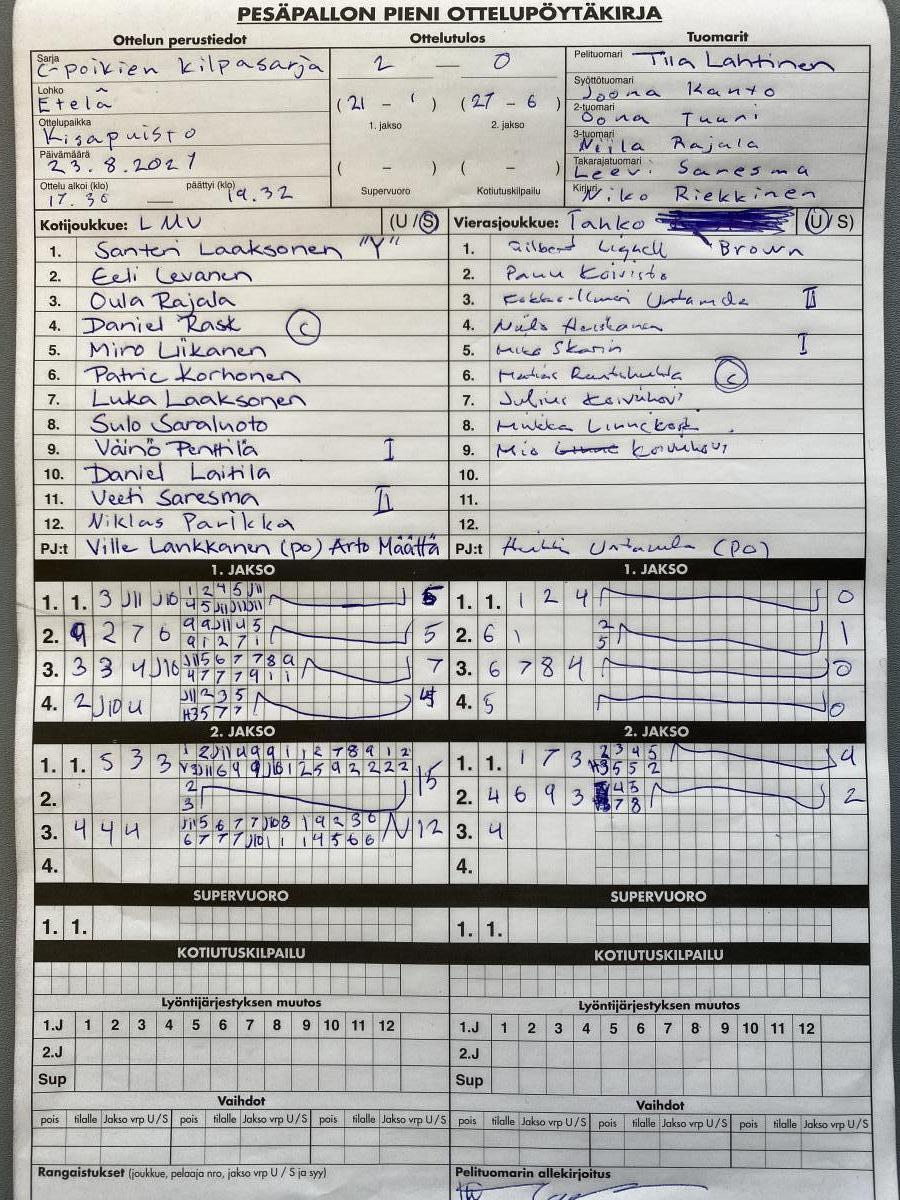 PESÄPALLON PIENI OTTELUPÖYTÄKIRJA
Ottelun perustiedot
Sarja
C-poikien kilpasarja
Lohko
Etelä
Ottelupaikka
Kisapuisto
Päivämäärä
23.8.2021
Ottelu alkoi (klo) päättyi (klo)
17.30 — 19.32
Ottelutulos
2 — 0
(21 - 1) (27 - 6)
1. jakso 2. jakso
( - ) ( - )
Supervuoro Kotiutuskilpailu
Tuomarit
Pelituomari Tiia Lahtinen
Syöttötuomari
Joona Kanto
2-tuomari
Oona Tuuni
3-tuomari
Niila Rajala
Takarajatuomari
Leevi Saresma
Kirjuri
Niko Riekkinen
Kotijoukkue: LMV (U/S)
1. Santeri Laaksonen "Y"
2. Eeli Levanen
3. Oula Rajala
4. Daniel Rask C
5. Miro Liikanen
6. Patric Korhonen
7. Luka Laaksonen
8. Sulo Saraluoto
9. Väinö Penttilä I
10. Daniel Laitila
11. Veeti Saresma II
12. Niklas Parikka
PJ:t Ville Lankkanen (po) Arto Määttä
Vierasjoukkue: Tahko (U/S)
1. Gilbert Brown
2. Panu Koivisto
3. Untamala II
4. Niilo
5. Mika Skarin I
6. Matias C
7. Julius Koivuhovi
8.
9. Mio Koivuhovi
10.
11.
12.
PJ:t Untamala (PO)
1. JAKSO
1. 1. 3 J11 J10 1 2 4 5 J11
4 5 J11 J11 J11 5
2. 9 2 7 6 9 9 J11 4 5
9 1 2 7 1 5
3. 3 3 4 J10 J11 5 6 7 7 7 8 9
4 7 7 7 9 1 1 7
4. 2 J10 4 J11 2 3 5
H3 5 7 7 4
1. JAKSO
1. 1. 1 2 4 0
2. 6 1 2
5 1
3. 6 7 8 4 0
4. 5 0
2. JAKSO
1. 1. 5 3 3 1 2 J11 4 9 9 1 1 2 7 8 9 1 2
V3 J11 6 9 9 J10 1 2 5 9 2 2 2 2 15
2. 2
3
3. 4 4 4 J11 5 6 7 7 J10 8 1 9 2 3 6
6 7 7 7 J10 1 1 1 4 5 6 6 12
4.
2. JAKSO
1. 1. 1 7 3 2 3 4 5
H3 5 5 2 4
2. 4 6 9 3 4 5
7 8 2
3. 4
4.
SUPERVUORO
1. 1.
SUPERVUORO
1. 1.
KOTIUTUSKILPAILU
KOTIUTUSKILPAILU
Lyöntijärjestyksen muutos
1.J 1 2 3 4 5 6 7 8 9 10 11 12
2.J
Sup
Lyöntijärjestyksen muutos
1.J 1 2 3 4 5 6 7 8 9 10 11 12
2.J
Sup
Vaihdot
pois tilalle Jakso vrp U/S pois tilalle Jakso vrp U/S pois tilalle Jakso vrp U/S
Vaihdot
pois tilalle Jakso vrp U/S pois tilalle Jakso vrp U/S pois tilalle Jakso vrp U/S
Rangaistukset (joukkue, pelaaja nro, jakso vrp U / S ja syy)
Pelituomarin allekirjoitus